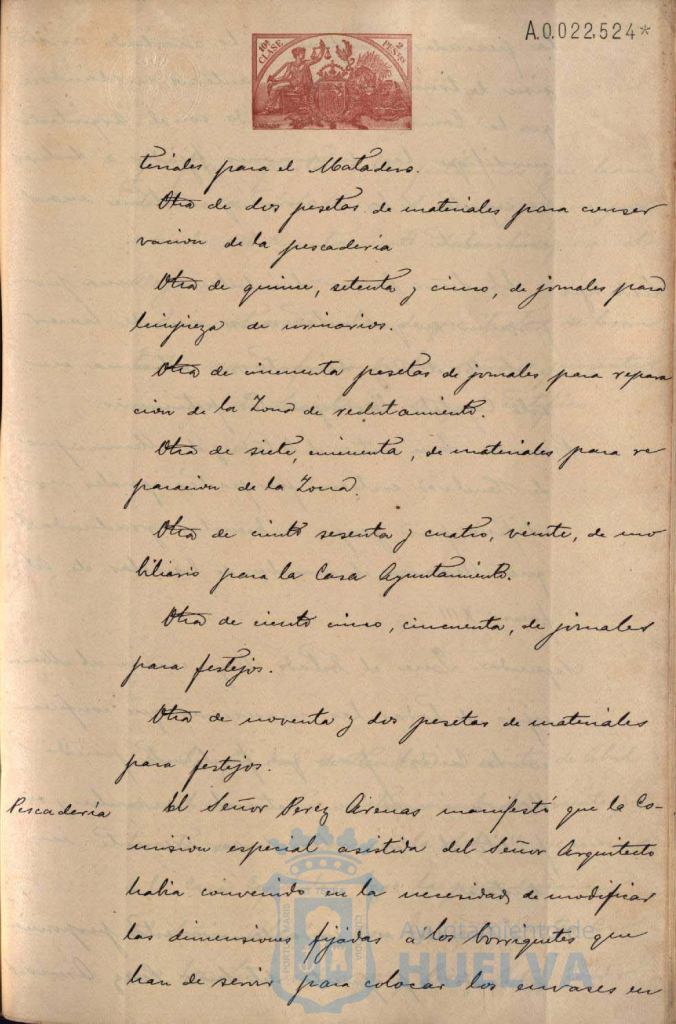 A.0.022,524*
10ª CLASE
2 PESETAS
teriales para el Matadero.
Otra de dos pesetas de materiales para conser
vacion de la pescaderia
Otra de quince, setenta y cinco, de jornales para
limpieza de urinarios.
Otra de cincuenta pesetas de jornales para repara
cion de la Zona de reclutamiento.
Otra de siete, cincuenta, de materiales para re
paracion de la Zona.
Otra de ciento sesenta y cuatro, veinte, de mo
biliario para la Casa Ayuntamiento.
Otra de ciento cinco, cincuenta, de jornales
para festejos.
Otra de noventa y dos pesetas de materiales
para festejos.
Pescadería
El Señor Perez Arenas manifestó que la Co-
mision especial asistida del Señor Arquitecto
habia convenido en la necesidad de modificar
las dimensiones fijadas a los borriquetes que
han de servir para colocar los envases en
Ayuntamiento de
HUELVA